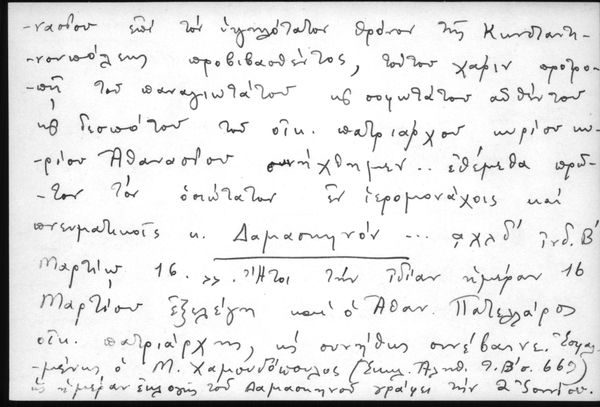 -νασίου ἐπὶ τὸν ὑψηλότατον θρόνον τῆς Κωνσταντι-
-νουπόλεως προβιβασθέντος, τούτου χάριν προτρο-
-πῇ τοῦ παναγιωτάτου κ̀ σοφωτάτου αὐθέντου
κ̀ δεσπότου τοῦ οἰκ. πατριάρχου κυρίου κυ-
-ρίου Ἀθανασίου συνήχθημεν.. ἐθέμεθα πρῶ-
-τον τὸν ὁσιώτατον ἐν ἱερομονάχοις καὶ
πνευματικοῖς κ. Δαμασκηνόν ... αχλδ´ ἰνδ. Β´
Μαρτίῳ 16. >>. Ἤτοι τὴν ἰδίαν ἡμέραν 16
Μαρτίου ἐξελέγη καὶ ὁ Ἀθαν. Πατελλάρος
οἰκ. πατριάρχης, ὡς συνήθως συνέβαινε. Ἐσφαλ-
-μένως ὁ Μ. Χαμουδόπουλος (Ἐκκλ. Ἀληθ. τ. Β´ σ. 667)
ὡς ἡμέραν ἐκλογῆς τοῦ Δαμασκηνοῦ γράφει τὴν